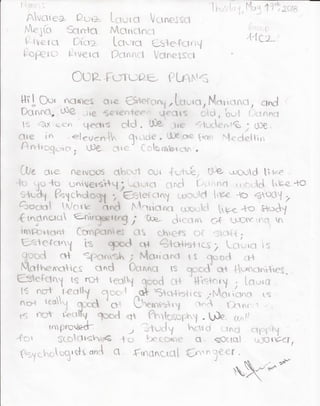 Names:
Thursday, May 17th 2018
Alvarez Ruiz Laura Vanessa
Mejía Santa Mariana
Group
Rivera Díaz Laura Estefany
11C2
Ropero Rivera Danna Vanessa
OUR FUTURE PLANS
Hi! Our names are Estefany, Laura, Mariana, and
Danna. We are seventeen years old, but Danna
is sixteen years old. We are students; we
are in eleventh grade. We are from Medellín
Antioquia, We are Colombian.
We are nervous about our future, We would like
to go to university; Laura and Danna would like to
study Psychology; Estefany would like to study
Social Work and Mariana would like to study
Financial Engineering; We dream of working in
important Companies as chiefs of staff;
Estefany is good at Statistics; Laura is
good at Spanish; Mariana is good at
Mathematics and Danna is good at Humanities.
Estefany is not really good at History; Laura
is not really good at Statistics; Mariana is
not really good at Chemistry and Danna
is not really good at Philosophy. We will
improved, Study hard and apply
for scolarships to become a social worker,
Psychologists and a Financial Eningeer.